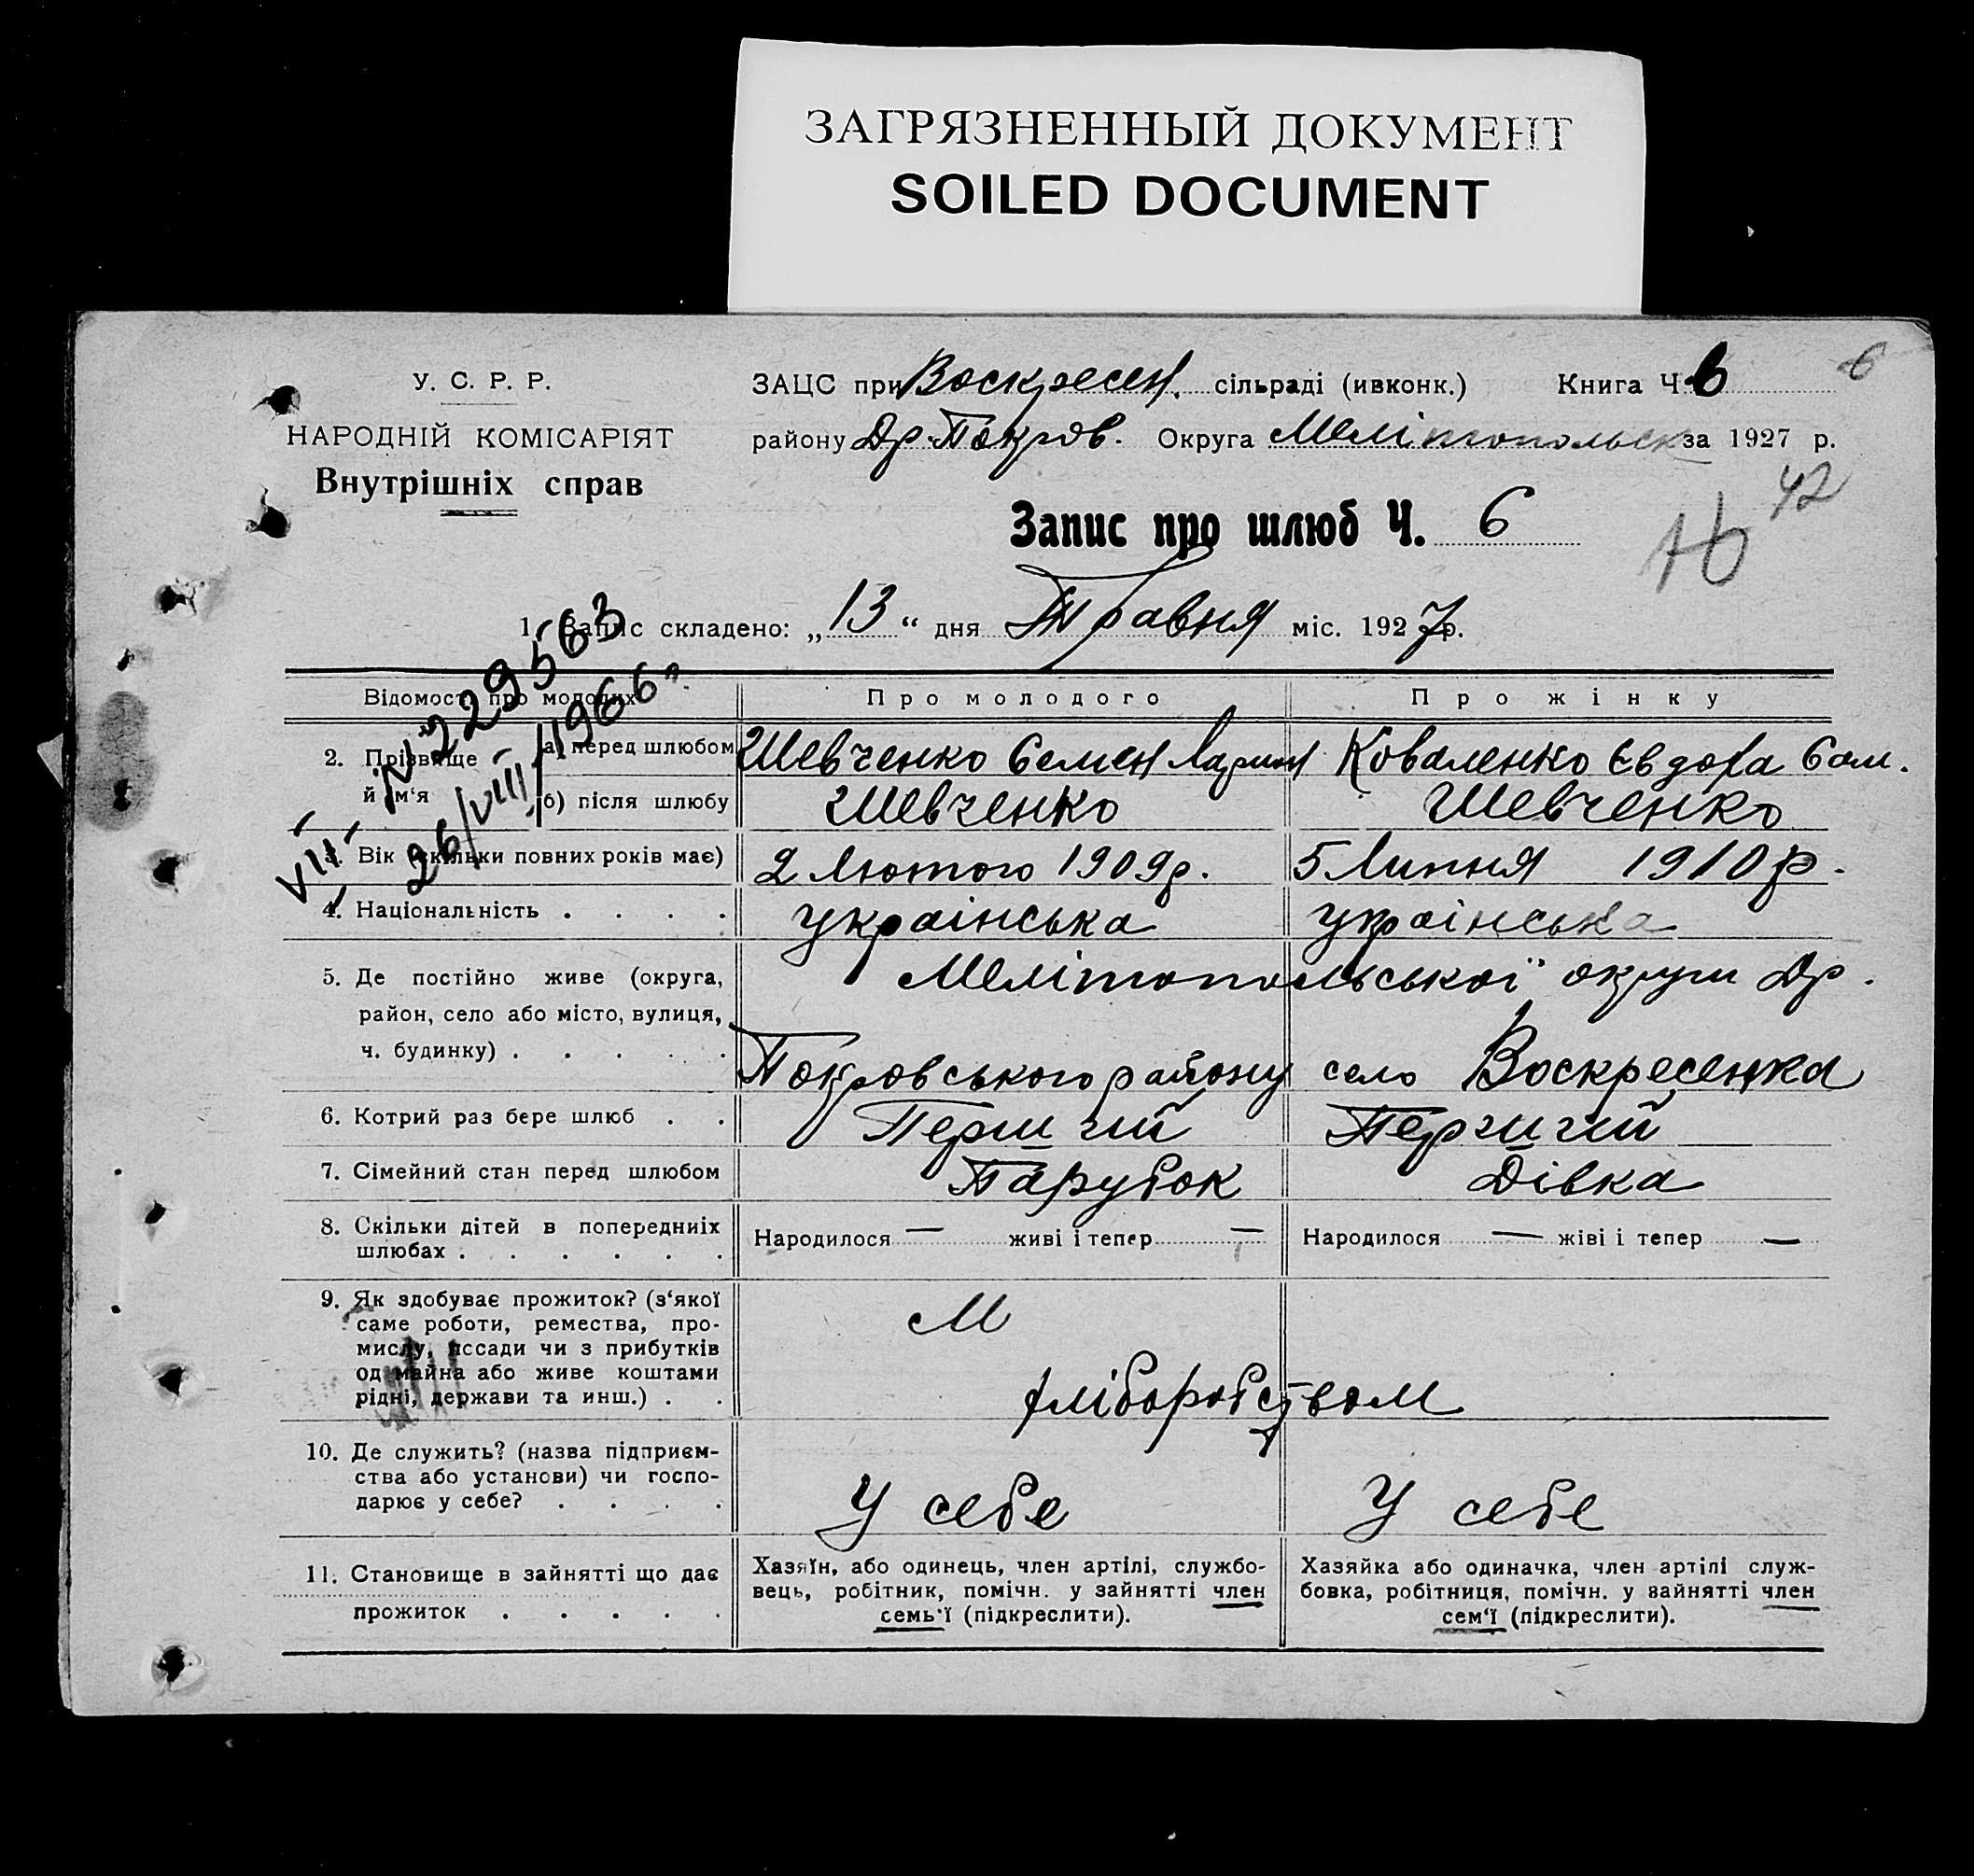 ЗАГРЯЗНЕННЫЙ ДОКУМЕНТ
SOILED DOCUMENT
У. С. Р. Р.
НАРОДНІЙ КОМІСАРІЯТ
Внутрішніх справ
ЗАЦС при Воскресен. сільраді (ивконк.) Книга Ч. 6
6
району Др. Покров. Округа Мелітопольск за 1927 р.
42
Запис про шлюб Ч. 6
1. Запис складено: „13“ дня Травня міс. 1927 р.
VII N 229563
26/VIII 1966 г.
Відомості про молодих Про молодого Про жінку
2. Прізвище й ім‘я
а) перед шлюбом Шевченко Семен Ларион Коваленко Євдоха Сам.
б) після шлюбу Шевченко Шевченко
3. Вік (скільки повних років має) 2 Лютого 1909 р. 5 Липня 1910 р.
4. Національність . . . . українська українська
5. Де постійно живе (округа, Мелітопольської округи Др.
район, село або місто, вулиця,
ч. будинку) . . . . . Покровського району село Воскресенка
6. Котрий раз бере шлюб . . Перший Перший
7. Сімейний стан перед шлюбом Парубок Дівка
8. Скільки дітей в попередниіх Народилося — живі і тепер — Народилося — жіві і тепер —
шлюбах . . . . . .
9. Як здобуває прожиток? (з‘якої
саме роботи, ремества, про-
мислу, пссади чи з прибутків
од майна або живе коштами
рідні, держави та инш.) . .
М
хліборобством
10. Де служить? (назва підприєм-
ства або установи) чи госпо-
дарює у себе? . . . . У себе У себе
11. Становище в зайнятті що дає
прожиток . . . . .
Хазяїн, або одинець, член артілі, службо-
вець, робітник, помічн. у зайнятті член
семь‘ї (підкреслити).
Хазяйка або одиначка, член артілі служ-
бовка, робітниця, помічн. у зайнятті член
сем‘ї (підкреслити).